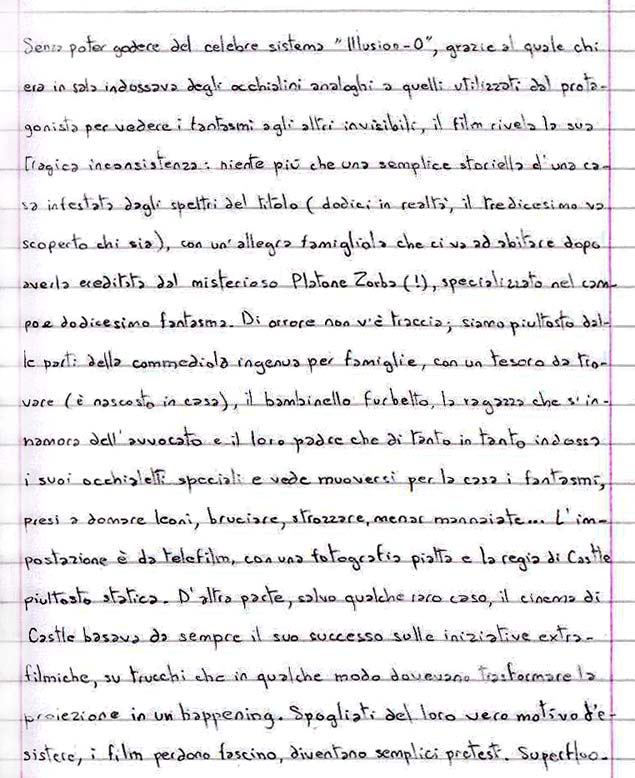 Senza poter godere del celebre sistema "Illusion-O", grazie al quale chi
era in sala indossava degli occhialini analoghi a quelli utilizzati dal prota-
gonista per vedere i fantasmi agli altri invisibili, il film rivela la sua
tragica inconsistenza: niente più che una semplice storiella d'una ca-
sa infestata dagli spettri del titolo (dodici in realtà, il tredicesimo va
scoperto chi sia), con un'allegra famigliola che ci va ad abitare dopo
averla ereditata dal misterioso Platone Zorba (!), specializzato nel cam-
po e dodicesimo fantasma. Di orrore non v'è traccia; siamo piuttosto dal-
le parti della commediola ingenua per famiglie, con un tesoro da tro-
vare (è nascosto in casa), il bambinello furbetto, la ragazza che s'in-
namora dell'avvocato e il loro padre che di tanto in tanto indossa
i suoi occhialetti speciali e vede muoversi per la casa i fantasmi,
presi a domare leoni, bruciare, strozzare, menar mannaiate... L'im-
postazione è da telefilm, con una fotografia piatta e la regia di Castle
piuttosto statica. D'altra parte, salvo qualche raro caso, il cinema di
Castle basava da sempre il suo successo sulle iniziative extra-
filmiche, su trucchi che in qualche modo dovevano trasformare la
proiezione in un happening. Spogliati del loro vero motivo d'e-
sistere, i film perdono fascino, diventano semplici pretest. Superfluo.